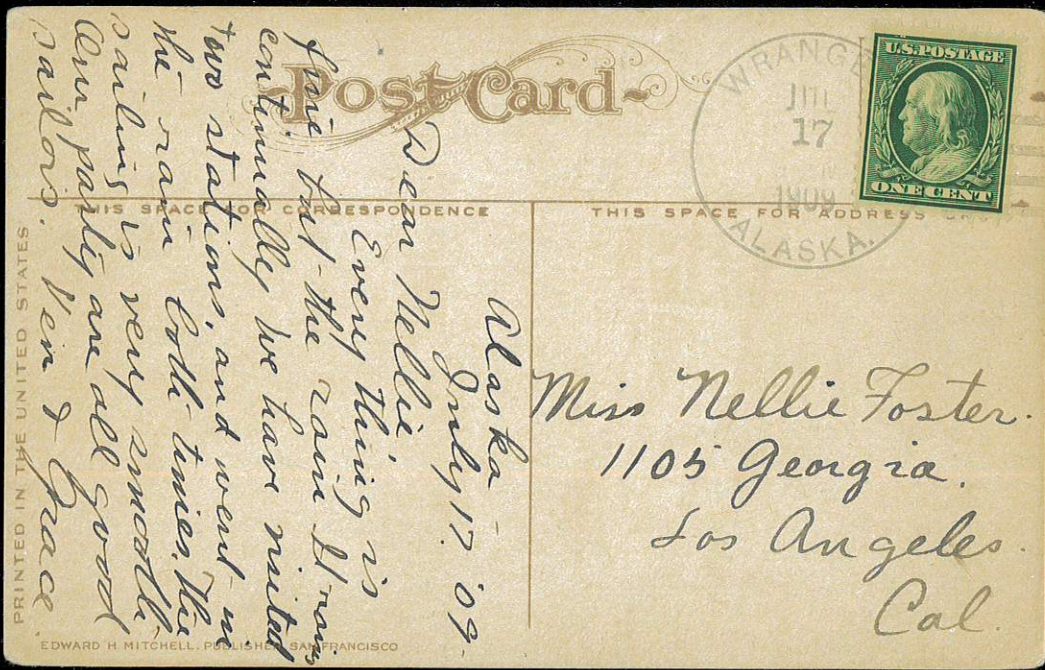 Post Card
THIS SPACE FOR CORRESPONDENCE
THIS SPACE FOR ADDRESS
WRANGE
JUL
17
1909
ALASKA.
U.S. POSTAGE
ONE CENT
Alaska
July 17 '09.
Dear Nellie,
Every thing is
fine but the rain. It rains
continually We have visited
two stations, and went in
the rain both times. The
sailing is very smooth
Our party are all good
sailors. & Grace
Miss Nellie Foster.
1105 Georgia.
Los Angeles.
Cal.
PRINTED IN THE UNITED STATES
EDWARD H. MITCHELL, PUBLISHER, SAN FRANCISCO